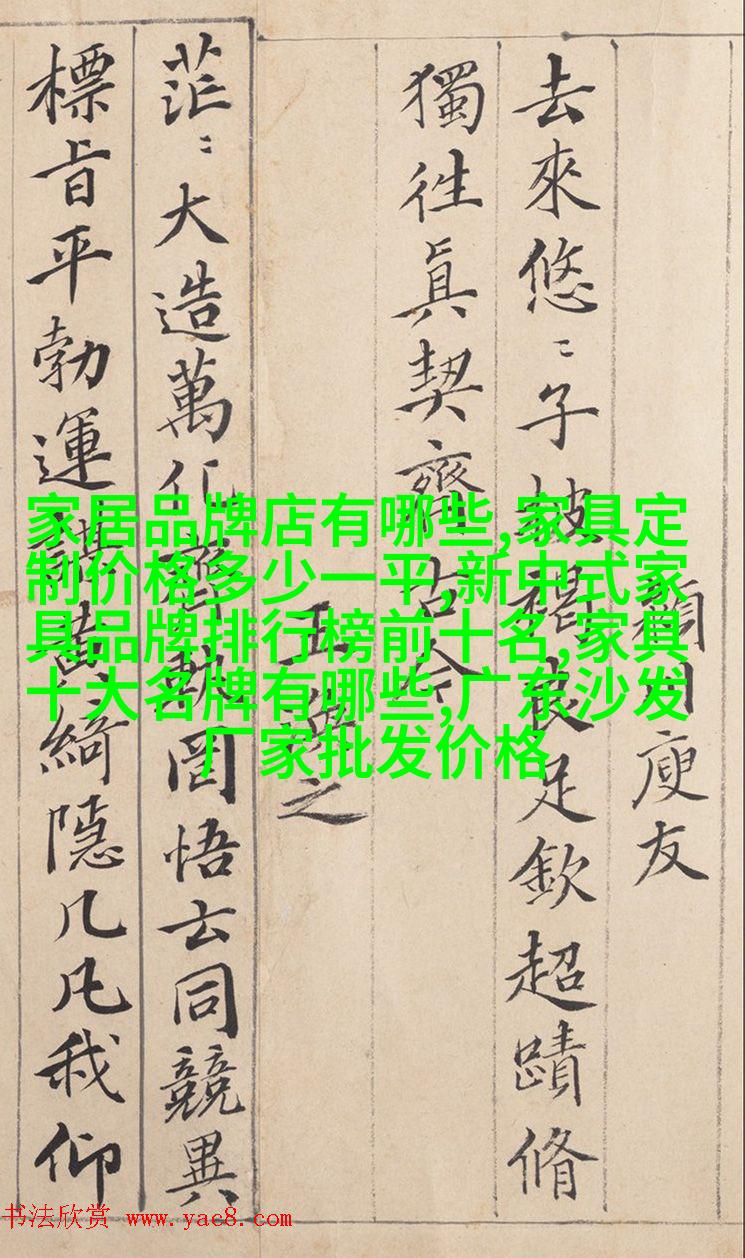 川庾友
去來悠〻子披褐良足欽超蹟脩
獨往眞契齊古今
之
茫〻大造萬化齊軌罔悟玄同競異
標旨平勃運謀黃綺隱几凡我仰
家居品牌店有哪些,家具定
制价格多少一平,新中式家
具品牌排行榜前十名,家具
十大名牌有哪些,广东沙发
厂家批发价格
书法欣赏 www.yac8.com